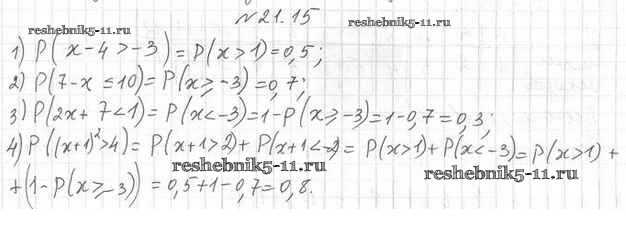 №21.15
reshebnik5-11.ru
reshebnik5-11.ru
1) P(x-4>-3)=P(x>1)=0,5;
2) P(7-x≤10)=P(x≥-3)=0,7;
3) P(2x+7<1)=P(x<-3)=1-P(x≥-3)=1-0,7=0,3;
4) P((x+1)²>4)=P(x+1>2)+P(x+1<-2)=P(x>1)+P(x<-3)=P(x>1)+
reshebnik5-11.ru
reshebnik5-11.ru
+(1-P(x≥-3))=0,5+1-0,7=0,8.